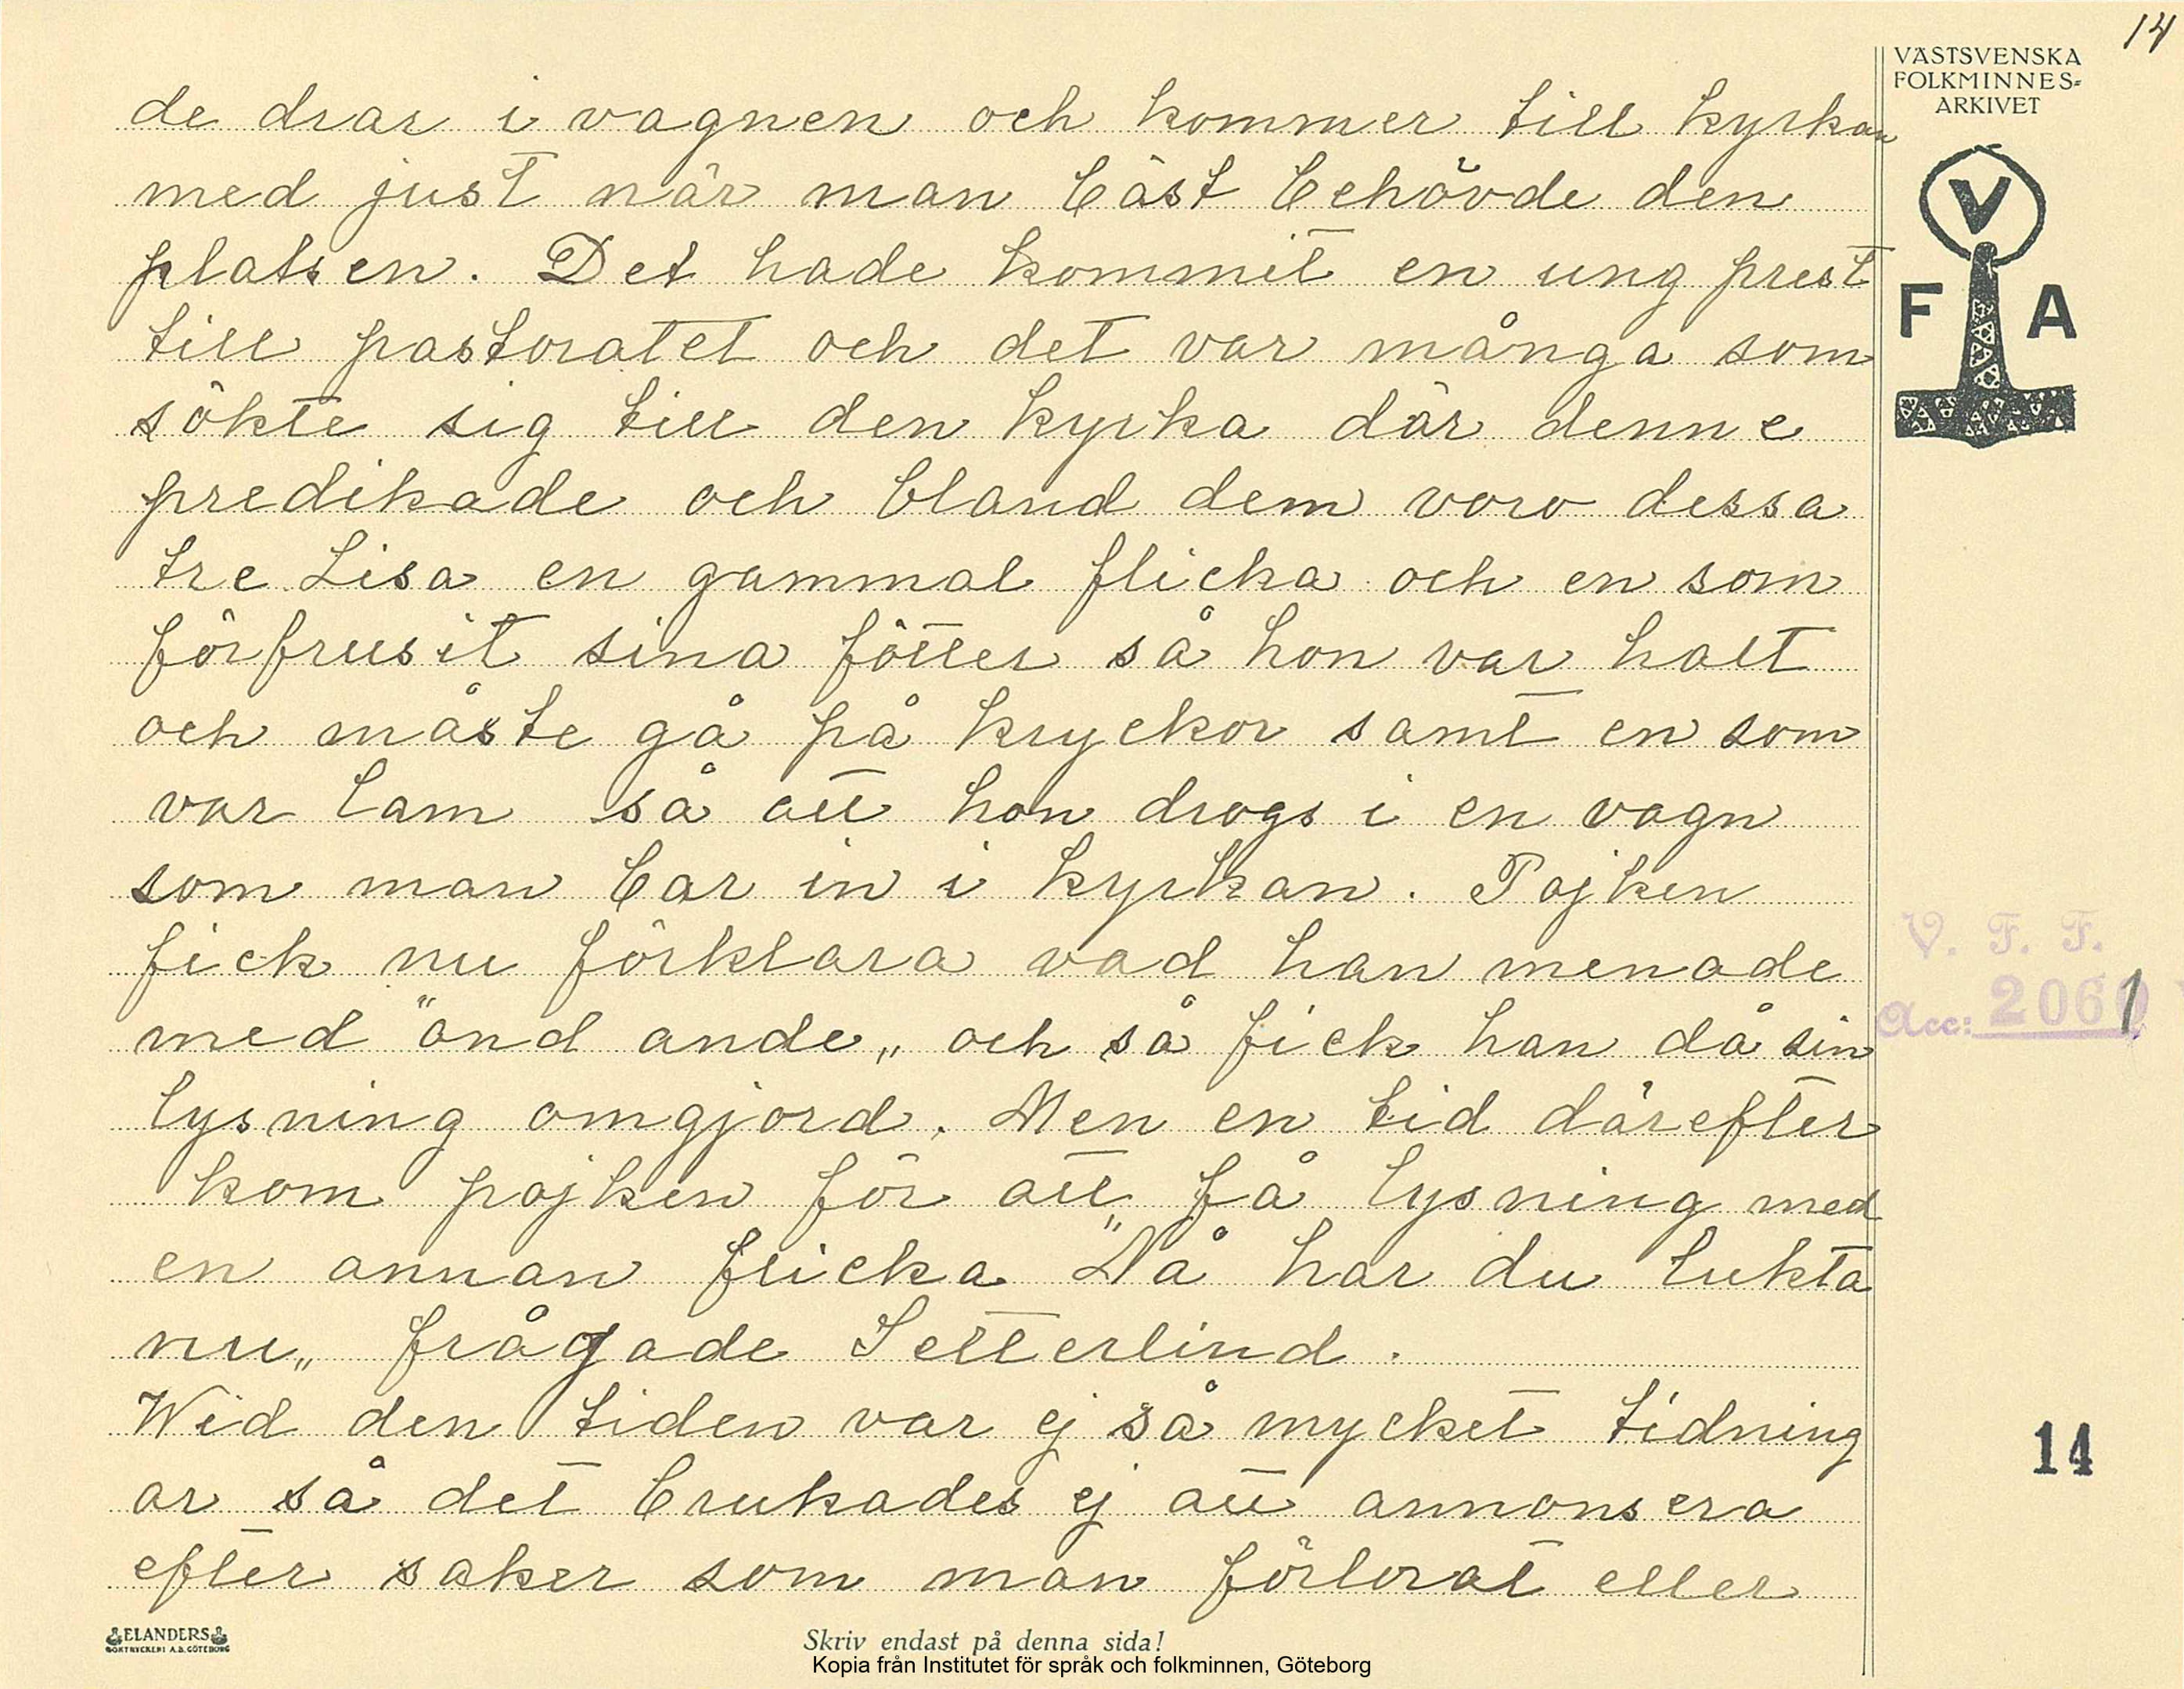 14
VÄSTSVENSKA
FOLKMINNES-
ARKIVET
V
F A
de drar i vagnen och kommer till kyrkan
med just när man bäst behövde den
platsen. Det hade kommit en ung prest
till pastoratet och det var många som
sökte sig till den kyrka där denne
predikade och bland dem voro dessa
tre Lisa en gammal flicka och en som
förfrusit sina fötter så hon var halt
och måste gå på kryckor samt en som
var lam så att hon drogs i en vagn
som man bar in i kyrkan. Pojken
fick nu förklara vad han menade
med "ond ande„ och så fick han då sin
lysning omgjord. Men en tid därefter
kom pojken för att få lysning med
en annan flicka "Nå har du lukta
nu„ frågade Setterlind.
Wid den tiden var ej så mycket tidning
ar så det brukades ej att annonsera
efter saker som man förlorat eller
V. F. F.
Acc: 2061
14
ELANDERS
BOKTRYCKERI A.B. GÖTEBORG
Skriv endast på denna sida!
Kopia från Institutet för språk och folkminnen, Göteborg